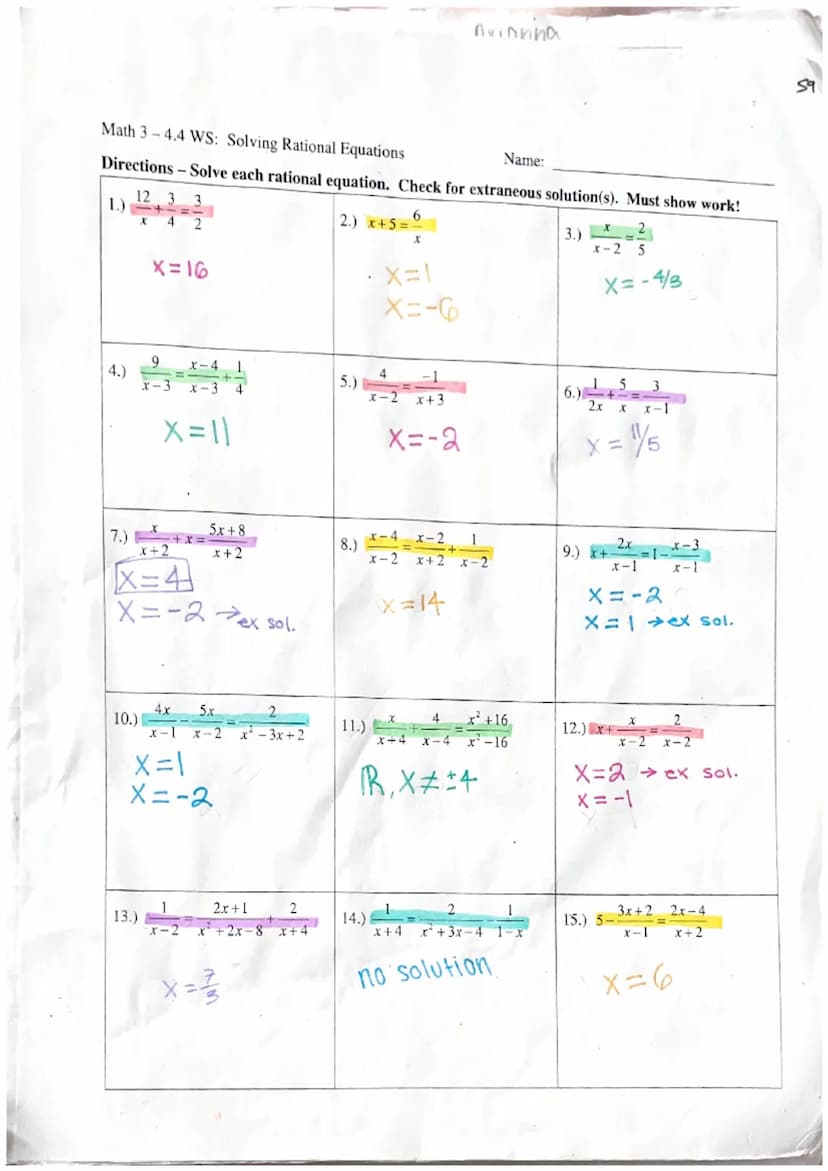 Avianna
59
Math 3 – 4.4 WS: Solving Rational Equations
Name:
Directions – Solve each rational equation. Check for extraneous solution(s). Must show work!
1.) 12/x + 3/4 = 3/2
x = 16
2.) x + 5 = 6/x
x = 1
x = -6
3.) x/(x-2) = 2/5
x = -4/3
4.) 9/(x-3) = (x-4)/(x-3) + 1/4
x = 11
5.) 4/(x-2) = -1/(x+3)
x = -2
6.) 1/(2x) + 5/x = 3/(x-1)
x = 11/5
7.) x/(x+2) + x = (5x+8)/(x+2)
x = 4
x = -2 → ex sol.
8.) (x-4)/(x-2) = (x-2)/(x+2) + 1/(x-2)
x = 14
9.) x + 2x/(x-1) = 1 - (x-3)/(x-1)
x = -2
x = 1 → ex sol.
10.) 4x/(x-1) - 5x/(x-2) = 2/(x²-3x+2)
x = 1
x = -2
11.) x/(x+4) + 4/(x-4) = (x²+16)/(x²-16)
ℝ, x ≠ ±4
12.) x + x/(x-2) = 2/(x-2)
x = 2 → ex sol.
x = -1
13.) 1/(x-2) = (2x+1)/(x²+2x-8) + 2/(x+4)
x = 7/3
14.) 1/(x+4) = 2/(x²+3x-4) - 1/(1-x)
no solution
15.) 5 - (3x+2)/(x-1) = (2x-4)/(x+2)
x = 6